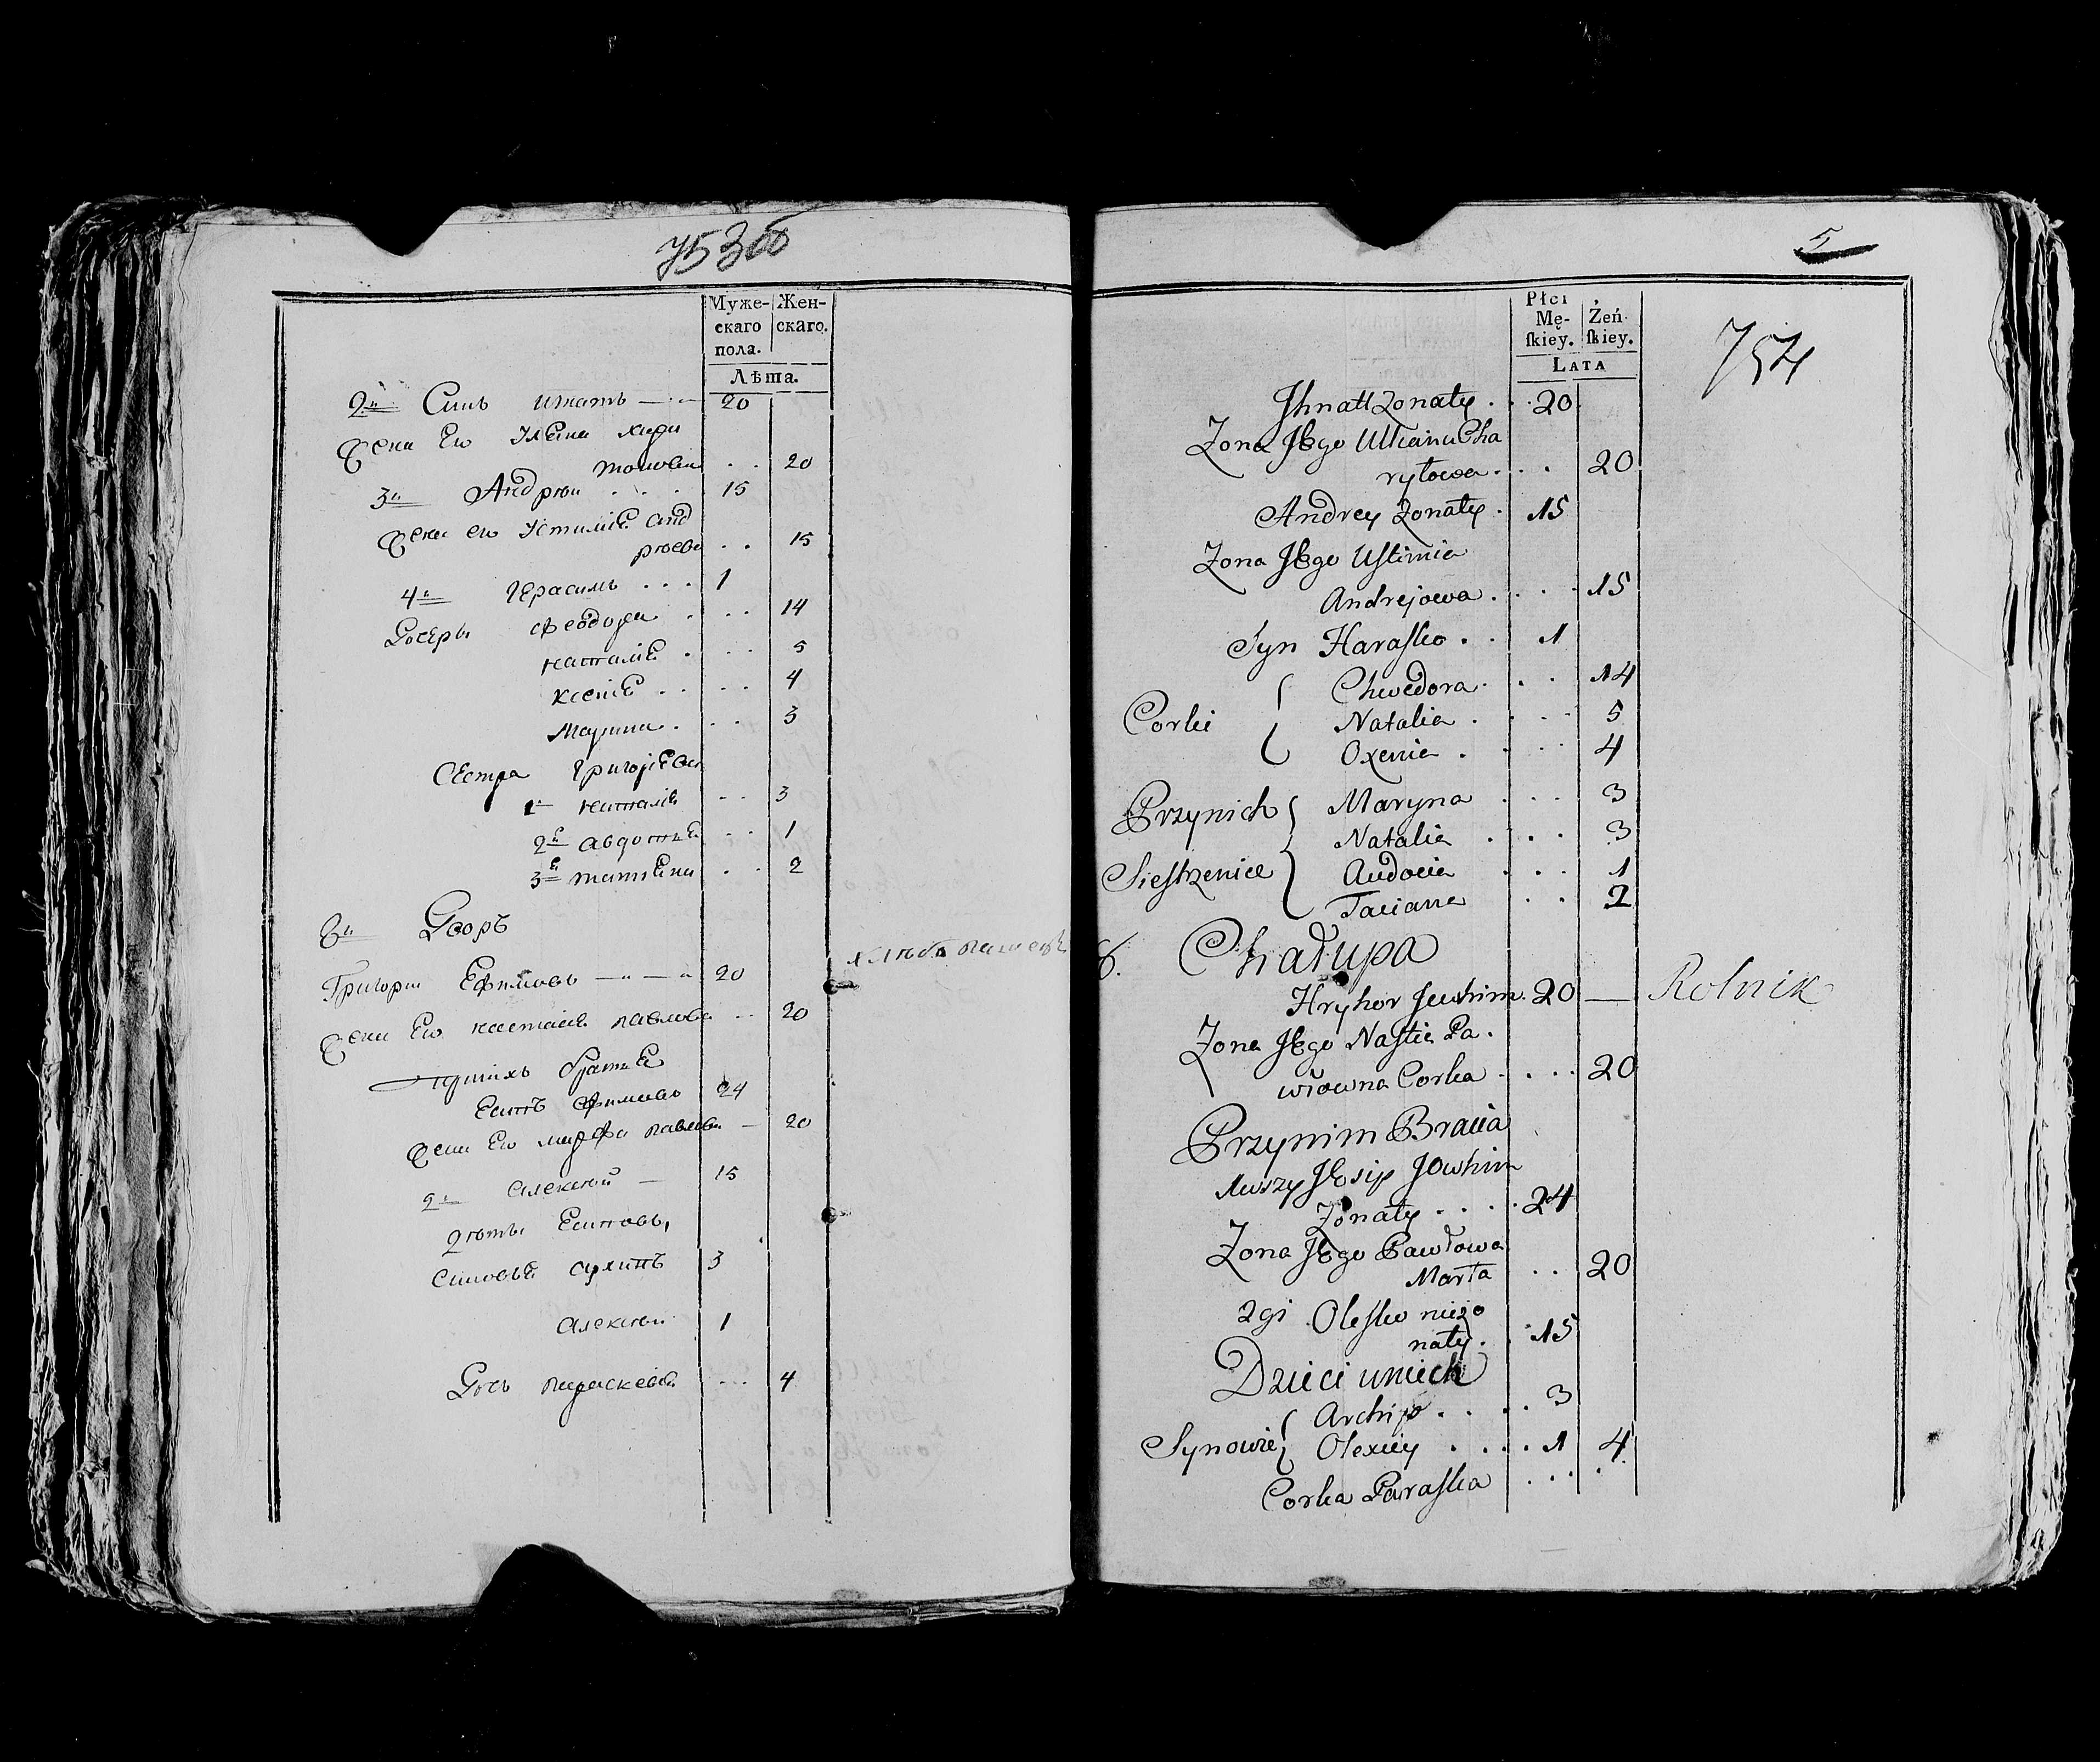 753об
Муже-
скаго
пола.
Жен-
скаго.
Лѣта.
2й Синъ игнатъ 20
Жена Его Улѣяна хари
тонова . . 20
3й Андрѣй . . . 15
Жена его Устимiѣ Анд
рѣева . . 15
4й Герасимъ . . . 1
Дочеры Феодора . . . 14
наталiѣ . . . 5
ксенiѣ . . . . 4
Марина . . . 3
Сестра Григорiева
1я наталiѣ . . 3
2ѣ авдотиѣ . . 1
3ѣ татиѣна . . 2
8й Дворъ
Григори Ефимовъ 20 хлѣбопашецъ
Жена Его настасiѣ павлова . . 20
При ихъ братиѣ
Есипъ Ефимовъ 24
Жена Его марфа павлова 20
2й алексѣй 15
дѣты Есиповы,
синовѣѣ архипъ 3
алексѣй 1
Дочь параскевiѣ . . . 4
5
754
Płci
Mę-
ſkiey.
Żeń-
ſkiey.
LATA
Jhnatt Zonaty . . 20
Zona Jego Ulliana Cha
rytowa . . . 20
Andrey Zonaty . 15
Zona Jego Ustimia
Andrejowa . . . . 15
Syn Harasko . . 1
Chwedora . . . 14
Corki Natalia . . . . 5
Oxenia . . . . 4
Przynich Maryna . . . 3
Natalia . . . . 3
Siestrzenice Audocia . . . 1
Taciana . . 2
8. Chałupa
Hryhor Jewhim. 20 — Rolnik
Zona Jego Nastia Pa.
włowna Corka . . . . 20
Przynim Bracia
1wszy Josip Jowhim
Zonaty . . . . 24
Zona Jego Pawłowa
Marta . . 20
2gi Olesko nieżo
naty . . 15
Dzieci unich
Archip . . . . 3
Synowie Olexiey . . . . 1 4
Corka Paraska . . . .